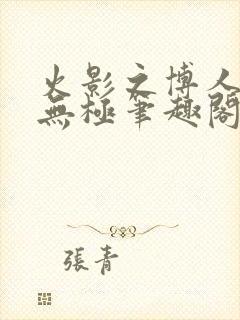 火影之博人
無極筆趣閣
張青